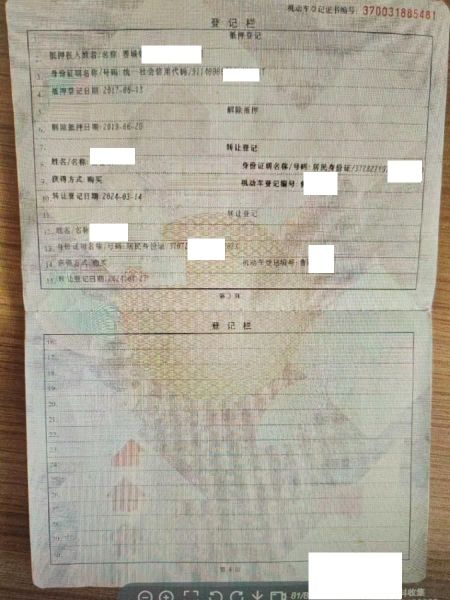 机动车登记证书编号: 370031885481
登记栏
抵押登记
1.
2. 抵押权人姓名/名称: 晋城
3. 身份证明名称/号码: 统一社会信用代码/911400
4. 抵押登记日期: 2017-06-13
5. 解除抵押
6. 解除抵押日期: 2019-06-20
7. 转让登记
8. 姓名/名称:
身份证明名称/号码: 居民身份证/37022319
9. 获得方式: 购买
机动车登记编号: 鲁
10. 转让登记日期: 2024-03-14
11. 转让登记
12. 姓名/名称
13. 身份证明名称/号码: 居民身份证/3702
14. 获得方式: 购买
机动车登记编号: 鲁
15. 转让登记日期: 2024-04-27
第 3 页
登记栏
16.
17.
18.
19.
20.
21.
22.
23.
24.
25.
26.
27.
28.
29.
30.
第 4 页
81/8
收集